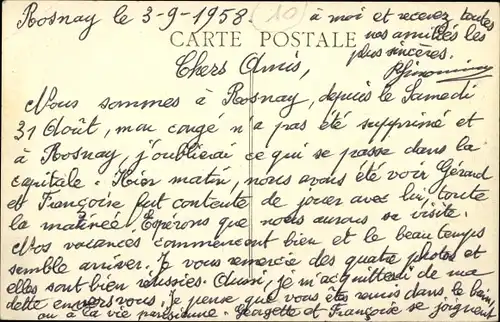 Rosnay le 3-9-1958. (10)
CARTE POSTALE
Chers Amis,
Nous sommes à Rosnay, depuis le Samedi
31 Août, mon congé n'a pas été supprimé et
à Rosnay, j'oublierai ce qui se passe dans la
capitale. Hier matin, nous avons été voir Gérard
et Françoise fut contente de jouer avec lui, toute
la matinée. Espérons que nous aurons sa visite.
Nos vacances commencent bien et le beau temps
semble arriver. Je vous remercie des quatre photos et
elles sont bien réussies. Aussi, je m'acquitterai de ma
dette envers vous. Je pense que vous êtes remis dans le bain,
ou à la vie parisienne. Georgette et Françoise se joignent
à moi et recevez toutes
nos amitiés les
plus sincères.